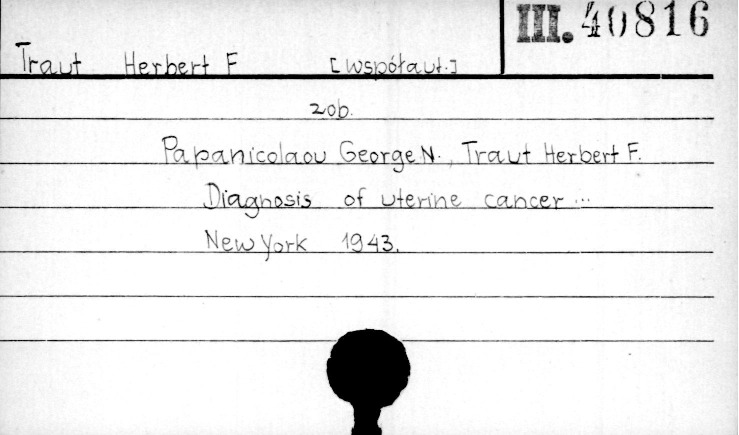 III. 40816
Traut Herbert F [współaut.]
zob.
Papanicolaou George N., Traut Herbert F.
Diagnosis of uterine cancer ...
New York 1943.